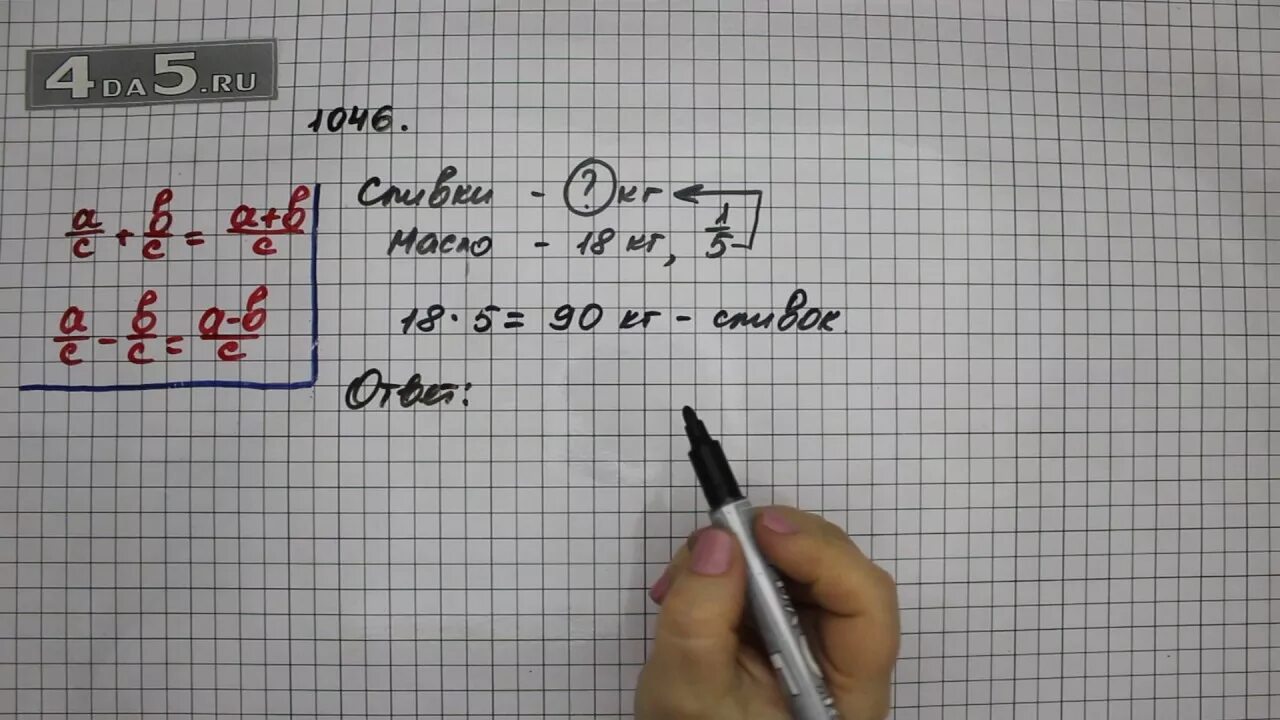 4DA5.RU
1046.
a/c + b/c = a+b/c
a/c - b/c = a-b/c
Сливки - ? кг
Масло - 18 кг, 1/5
18 · 5 = 90 кг - сливок
Ответ: